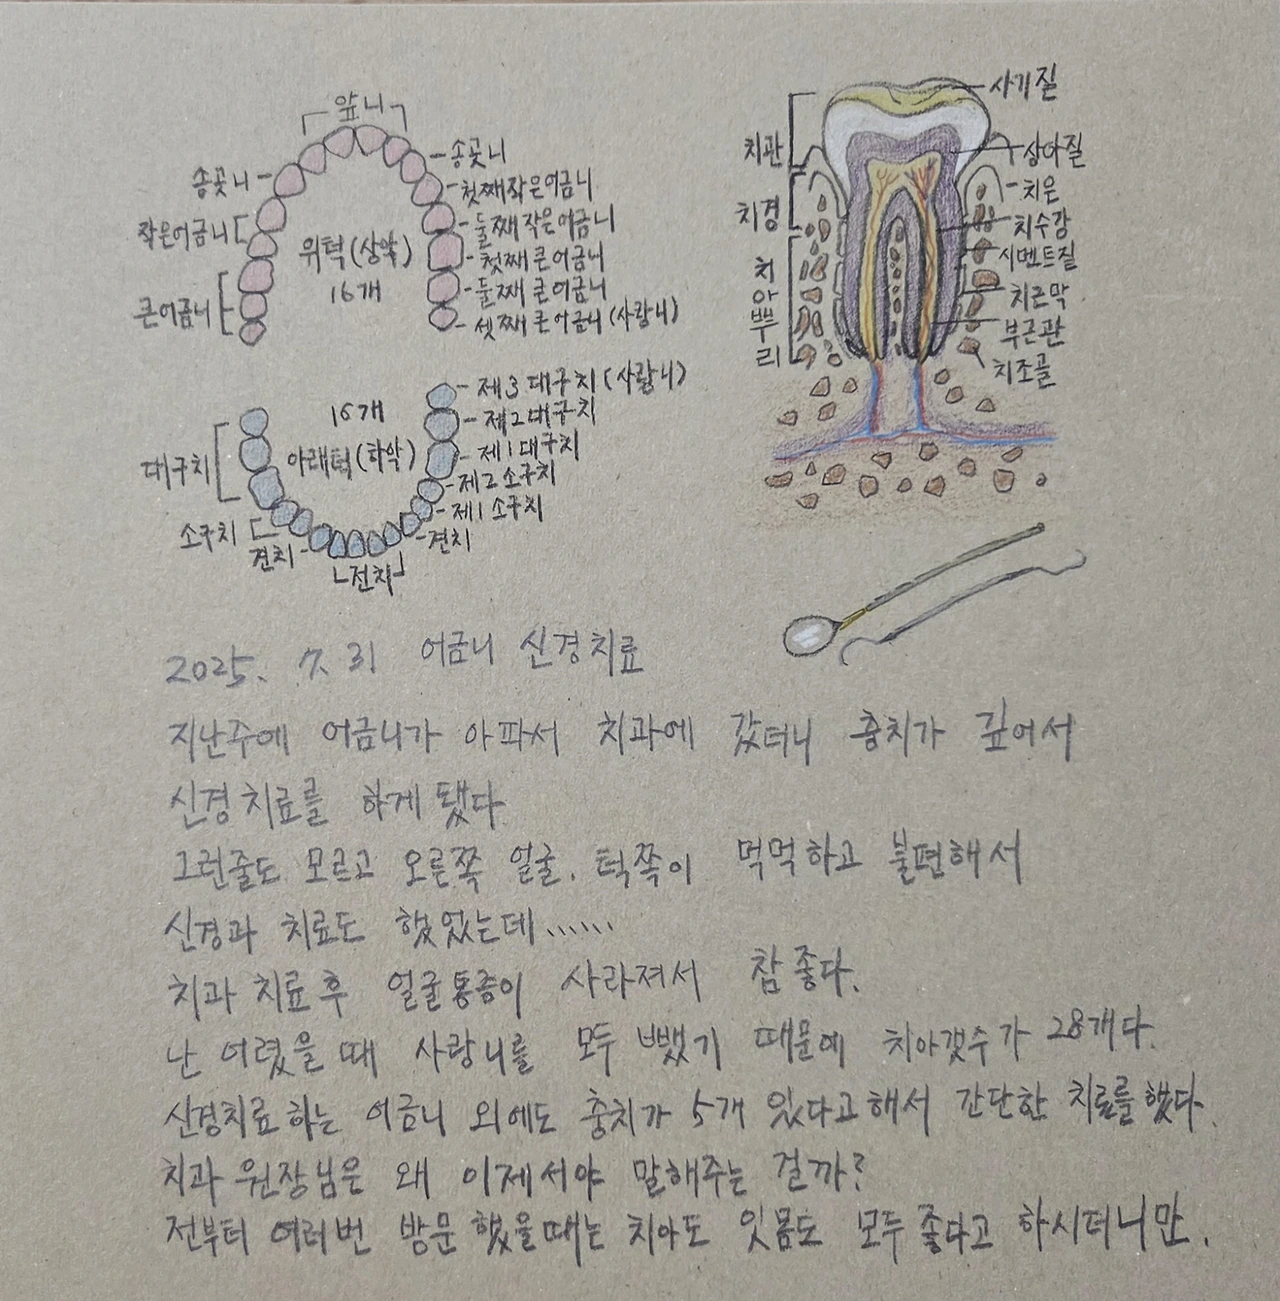 앞니
송곳니
작은어금니
큰어금니
송곳니
첫째작은어금니
둘째작은어금니
첫째큰어금니
둘째큰어금니
셋째큰어금니(사랑니)
위턱(상악)
16개
16개
아래턱(하악)
대구치
소구치
견치
전치
제3대구치(사랑니)
제2대구치
제1대구치
제2소구치
제1소구치
견치
치관
치경
치아뿌리
사기질
상아질
치은
치수강
시멘트질
치근막
부근관
치조골
2025. 7. 31 어금니 신경치료
지난주에 어금니가 아파서 치과에 갔더니 충치가 깊어서
신경치료를 하게 됐다
그런줄도 모르고 오른쪽 얼굴, 턱쪽이 먹먹하고 불편해서
신경과 치료도 했었는데......
치과 치료후 얼굴통증이 사라져서 참 좋다.
난 어렸을 때 사랑니를 모두 뺐기 때문에 치아갯수가 28개다.
신경치료하는 어금니 외에도 충치가 5개 있다고해서 간단한 치료를 했다.
치과 원장님은 왜 이제서야 말해주는 걸까?
전부터 여러번 방문했을때는 치아도 잇몸도 모두 좋다고 하시더니만.